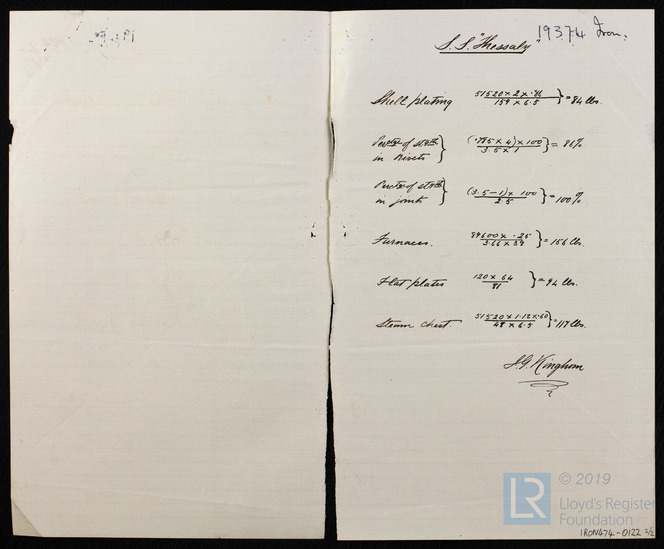 19374 Iron.
S.S. "Thessaly"
Shell plating 51520 x 2 x .86 / 159 x 6.5 } = 84 lbs.
Percte of strth in Rivets } (.785 x 4) x 100 / 3.5 x 1 } = 86%
Percte of strth in joints } (3.5 - 1) x 100 / 2.5 } = 100%
Furnaces. 89600 x .25 / 3.66 x 39 } = 156 lbs.
Flat plates 120 x 64 / 81 } = 94 lbs.
Steam chest. 51520 x 1.12 x .60 / 48 x 6.5 } = 117 lbs.
J.G. Kinghorn
LR © 2019
Lloyd's Register
Foundation
IRON474-0122 2/2